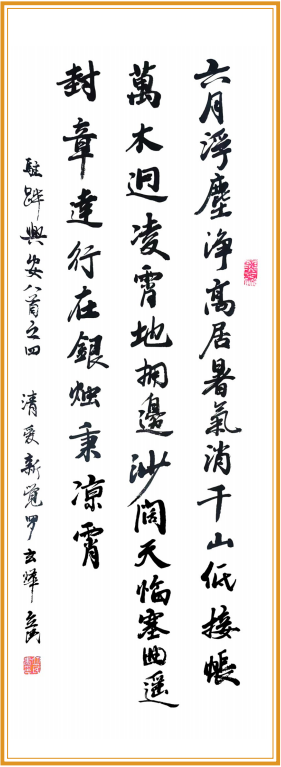 六月浮塵净高居暑氣消千山低接帳
萬木迥凌霄地拥邊沙闊天临塞曲遥
封章達行在銀烛秉凉霄
駐蹕興安八首之四 清爱新觉罗玄燁